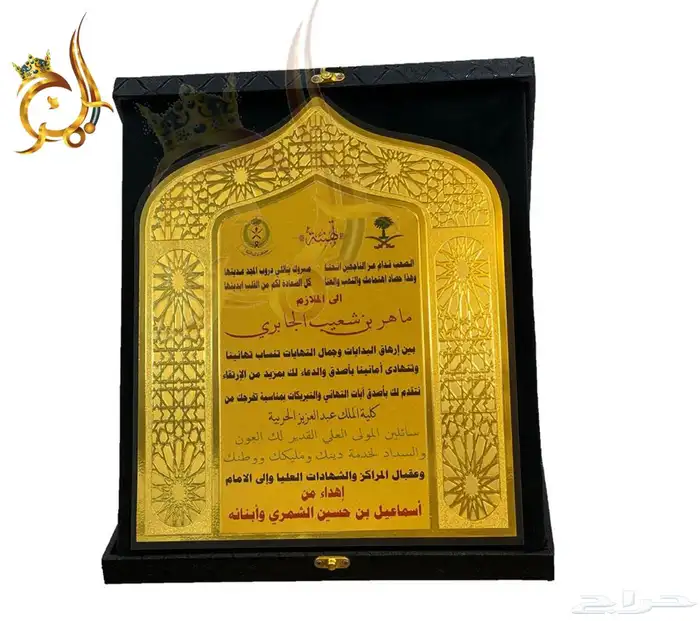 تهنئة
الصعب قدام عز الناجحين انحنا مبروك يتالي دروب المجد عديتها
وهذا حصاد اهتمامك والتعب والعنا كل السعادة لكم من القلب أبديتها
الى الملازم
ماهر بن شعيب الجابري
بين إرهاق البدايات وجمال النهايات تنساب تهانينا
وتتهادى أمانينا بأصدق والدعاء لك بمزيد من الإرتقاء
نتقدم لك بأصدق آيات التهاني والتبريكات بمناسبة تخرجك من
كلية الملك عبدالعزيز الحربية
سائلين المولى العلي القدير لك العون
والسداد لخدمة دينك ومليكك ووطنك
وعقبال المراكز والشهادات العليا وإلى الامام
إهداء من
أسماعيل بن حسين الشمري وأبنائه
حراج